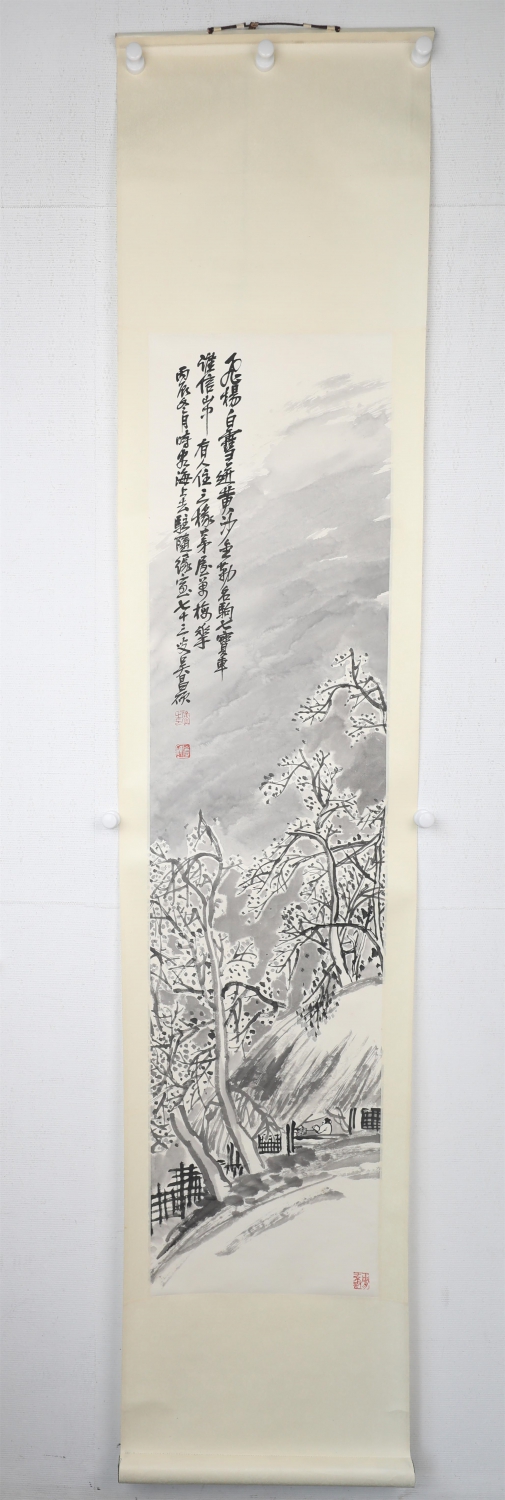 飛楊白雪拼黄沙金勒名駒七寶車
誰信山中有人住三椽茅屋萬梅華
丙辰冬月時客海上去駐隨緣室七十三歲吳昌碩